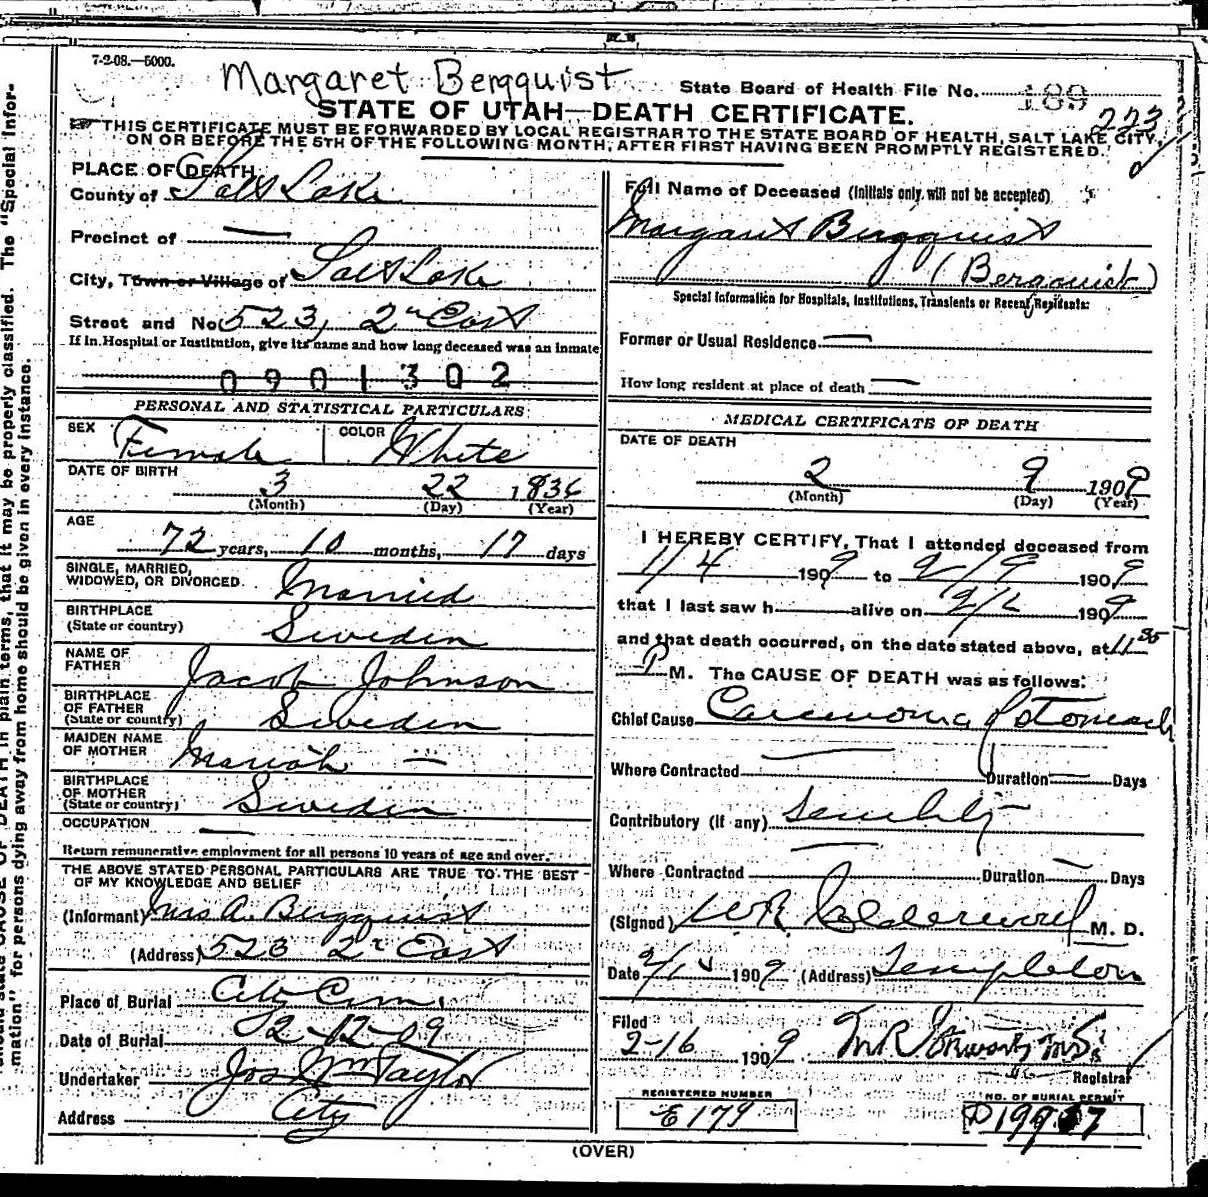 7-2-08.—5000.
Margaret Bergquist
State Board of Health File No. 189
STATE OF UTAH—DEATH CERTIFICATE.
223
THIS CERTIFICATE MUST BE FORWARDED BY LOCAL REGISTRAR TO THE STATE BOARD OF HEALTH, SALT LAKE CITY,
ON OR BEFORE THE 5TH OF THE FOLLOWING MONTH, AFTER FIRST HAVING BEEN PROMPTLY REGISTERED.
PLACE OF DEATH
County of Salt Lake
Precinct of —
City, Town or Village of Salt Lake
Street and No 523, 2n East
If in Hospital or Institution, give its name and how long deceased was an inmate
0901302
PERSONAL AND STATISTICAL PARTICULARS
SEX Female COLOR White
DATE OF BIRTH
3 22 1836
(Month) (Day) (Year)
AGE
72 years, 10 months, 17 days
SINGLE, MARRIED,
WIDOWED, OR DIVORCED. Married
BIRTHPLACE
(State or country) Sweden
NAME OF
FATHER Jacob Johnson
BIRTHPLACE
OF FATHER
(State or country) Sweden
MAIDEN NAME
OF MOTHER Mariah —
BIRTHPLACE
OF MOTHER
(State or country) Sweden
OCCUPATION —
Return remunerative employment for all persons 10 years of age and over.
THE ABOVE STATED PERSONAL PARTICULARS ARE TRUE TO THE BEST
OF MY KNOWLEDGE AND BELIEF
(Informant) Mrs A. Bergquist
(Address) 523 2n East
Place of Burial City Cem.
Date of Burial 2-12-09
Undertaker Jos Wm Taylor
Address City
Full Name of Deceased (Initials only will not be accepted)
Margaret Bergquist
(Bergquist)
Special Information for Hospitals, Institutions, Transients or Recent Residents:
Former or Usual Residence —
How long resident at place of death —
MEDICAL CERTIFICATE OF DEATH
DATE OF DEATH
2 9 1909
(Month) (Day) (Year)
I HEREBY CERTIFY, That I attended deceased from
1/4 1909 to 2/9 1909
that I last saw h alive on 1909
and that death occurred, on the date stated above, at 11 35
P M. The CAUSE OF DEATH was as follows:
Chief Cause Carcinoma of Stomach
Where Contracted — Duration — Days
Contributory (If any) Senility
Where Contracted — Duration — Days
(Signed) W.R. Calderwood M. D.
Date 1909 (Address) Templeton
Filed
2-16 1909
Registrar
REGISTERED NUMBER
E 179
NO. OF BURIAL PERMIT
(OVER)
mation" for persons dying away from home should be given in every instance.
DEATH in plain terms, that it may be properly classified. The "Special Infor-